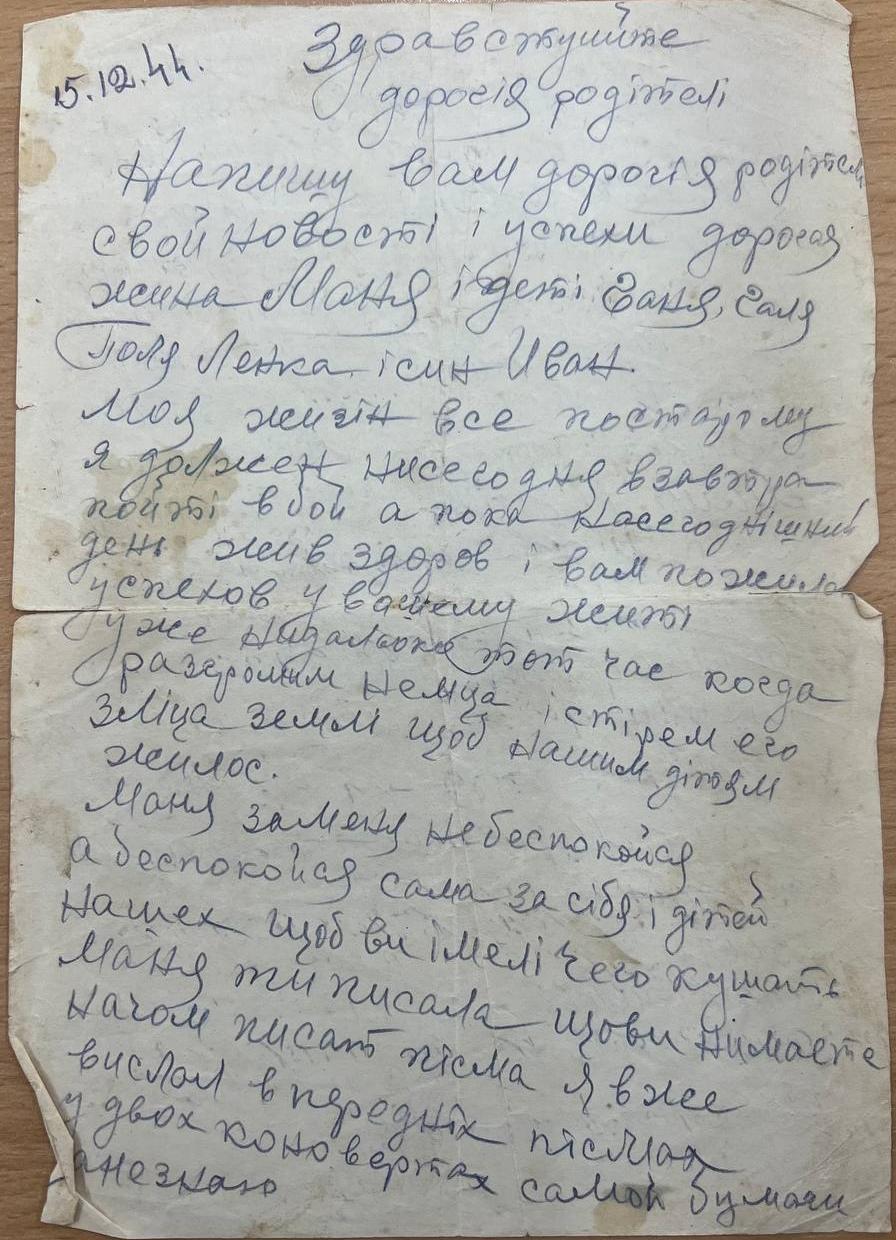 15.12.44.
Здравствуйте
дорогія родітелі
Напишу вам дорогія родітелі
свой новості і успехи дорогая
жина Маня і деті Ганя, Галя
Поля Ленка і син Иван.
Моя жизін все постарому
я должен нисегодня взавтра
пойті в бой а пока насегоднішний
день жив здоров і вам пожилаю
успехов у вашему житі
уже нидалоко тот час когда
разгромим немца і стірем его
зліца землі щоб нашим дітям
жилос.
Маня заменя небеспокойся
а беспокойся сама за сібя і дітей
нашех щоб ви імелі чего кушать
Маня ти писала щови нимаете
начом писат пісма я вже
вислал в передніх пісмах
у двох коновертах самой бумаги
анезнаю